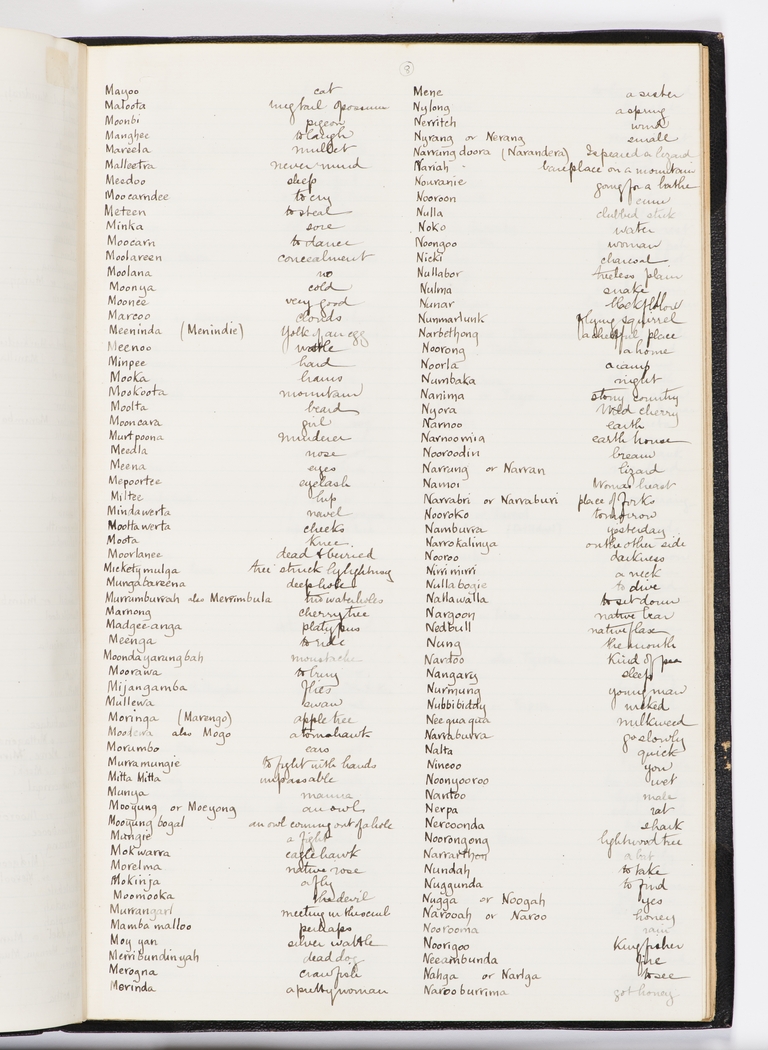 8
Mayoo cat
Maloota opossum
Moonbi pigeon
Manghee to laugh
Mareela mullet
Malleetra never mind
Meedoo sleep
Moocarndee to cry
Meteen to steal
Minka sore
Moocarn to dance
Moolareen concealment
Moolana no
Moonya cold
Moonee very good
Marcoo clouds
Meeninda (Menindie) Yolk of an egg
Meenoo
Minpee hard
Mooka
Mookoota mountain
Moolta beard
Mooncara girl
Murtpoona murderer
Meedla nose
Meena eyes
Mepoortee eyelash
Miltee lip
Mindawerta navel
Moottawerta cheeks
Moota knee
Moorlanee dead & buried
Mickety mulga tree struck by lightning
Mungabareena deep hole
Murrumburrah also Merrimbula two waterholes
Marnong cherry tree
Madgee-anga platypus
Meenga to ride
Moondayarangbah moustache
Moorawa to bury
Mijangamba flies
Mullewa swan
Moringa (Marengo) apple tree
also Mogo a tomahawk
Morumbo ears
Murramungie to fight with hands
Mitta Mitta impassable
Munya manna
Mooyung or Moeyong an owl
Mooyung bogal an owl coming out of a hole
Mangie a fight
Mokwarra eaglehawk
Morelma native rose
Mokinja a fly
Moomooka the devil
Murrangarl meeting in
Mamba malloo perhaps
Moy yan silver wattle
Merribundinyah dead dog
Merogna crawfish
Merinda a pretty woman
Mene a sister
Nylong a spring
Nerritch wind
Nyrang or Nerang small
Narrungdoora (Narandera) I speared a lizard
Nariah bare place on a mountain
Nouranie going for a bathe
Nooroon emu
Nulla clubbed stick
Noko water
Noongoo woman
Nicki charcoal
Nullabor treeless plain
Nulma snake
Nunar
Nunmarlunk flying squirrel
Narbethong a cheerful place
Noorong a home
Noorla a camp
Numbaka night
Nanima stony country
Nyora Wild cherry
Narnoo earth
Narnoomia earth house
Nooroodin bream
Narrung or Narran lizard
Namoi Womans breast
Narrabri or Narraburi place of forks
Nooroko tomorrow
Namburra yesterday
Narrokalinya on the other side
Nooroo darkness
Nirrimirri a neck
Nullabogie to dive
Nallawalla to sit down
Nargoon native bear
Nedbull native flax
Nung the mouth
Nardoo Kind of pea
Nangary sleep
Nurmung young man
Nubbibiddy wicked
Neequaqua milkweed
Narraburra go slowly
Nalta quick
Nineoo you
Noonyooroo wet
Nantoo male
Nerpa rat
Nercoonda shark
Noorongong lightwood tree
Narrarthon a bat
Nundah to take
Nuggunda to find
Nugga or Noogah yes
Narooah or Naroo honey
Noorooma rain
Noorigoo Kingfisher
Neeambunda fire
Nahga or Narlga to see
Narooburrima got honey